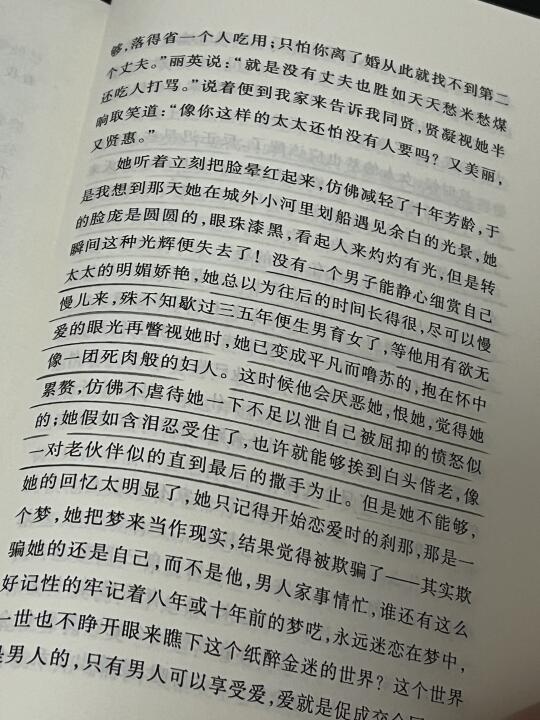 够，落得省一个人吃用；只怕你离了婚从此就找不到第二
个丈夫。”丽英说：“就是没有丈夫也胜如天天愁米愁煤
还吃人打骂。”说着便到我家来告诉我同贤，贤凝视她半
晌取笑道：“像你这样的太太还怕没有人要吗？又美丽，
又贤惠。”
她听着立刻把脸晕红起来，仿佛减轻了十年芳龄，于
是我想到那天她在城外小河里划船遇见余白的光景，她
的脸庞是圆圆的，眼珠漆黑，看起人来灼灼有光，但是转
瞬间这种光辉便失去了！没有一个男子能静心细赏自己
太太的明媚娇艳，他总以为往后的时间长得很，尽可以慢
慢儿来，殊不知歇过三五年便生男育女了，等他用有欲无
爱的眼光再瞥视她时，她已变成平凡而噜苏的，抱在怀中
像一团死肉般的妇人。这时候他会厌恶她，恨她，觉得她
累赘，仿佛不虐待她一下不足以泄自己被屈抑的愤怒似
的；她假如含泪忍受住了，也许就能够挨到白头偕老，像
一对老伙伴似的直到最后的撒手为止。但是她不能够，
她的回忆太明显了，她只记得开始恋爱时的刹那，那是一
个梦，她把梦来当作现实，结果觉得被欺骗了——其实欺
骗她的还是自己，而不是他，男人家事情忙，谁还有这么
好记性的牢记着八年或十年前的梦呓，永远迷恋在梦中，
一世也不睁开眼来瞧下这个纸醉金迷的世界？这个世界
是男人的，只有男人可以享受爱，爱就是促成交合